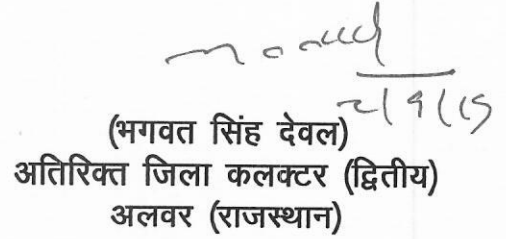 2/9/15
(भगवत सिंह देवल)
अतिरिक्त जिला कलक्टर (द्वितीय)
अलवर (राजस्थान)